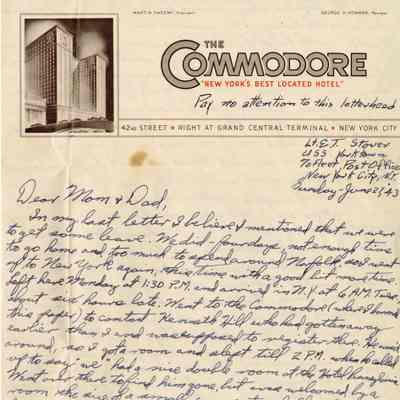 MARTIN SWEENY, President
THE
COMMODORE
"NEW YORK'S BEST LOCATED HOTEL"
Pay no attention to this letterhead
42ND STREET • RIGHT AT GRAND CENTRAL TERMINAL • NEW YORK CITY
Lt. E.T. Stover
USS Yorktown
℅ Fleet Post Office
New York City, N.Y.
Sunday - June 27, '43
Dear Mom & Dad,
In my last letter I believe I mentioned that we were
to get some leave. We did - four days, not enough time
to go home and too much to spend around Norfolk so I went
up to New York again, this time with a good bit more time.
Left here Monday at 1:30 P.M. and arrived in N.Y. at 6 A.M. Tues,
about six hours late. Went to the Commodore (where I found
this paper) to contact Kenneth Hill who had gotten away
earlier than I and was supposed to register there. He wasn't
around, so I got a room and slept till 2 P.M. when he called
up to say we had a nice double room at the Hotel Pennsylvania
Went over there to find him gone, but was welcomed by a
room the size of a small